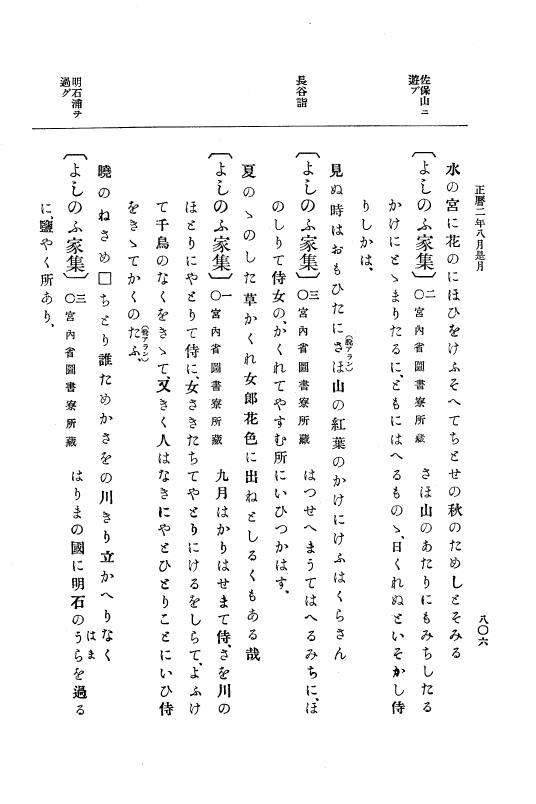 正曆二年八月是月
八〇六
水の宮に花のにほひをけふそへてちとせの秋のためしとそみる
佐保山ニ
遊ブ
〔よしのふ家集〕二〇宮內省圖書寮所藏 さほ山のあたりにもみちしたる
かけにとゝまりたるに、ともにはへるものゝ、日くれぬといそかし侍
りしかは、
見ぬ時はおもひたにさほ山の紅葉のかけにけふはくらさん
(脫アラン)
長谷詣
〔よしのふ家集〕三〇宮內省圖書寮所藏 はつせへまうてはへるみちに、ほ
のしりて侍女の、かくれてやすむ所にいひつかはす、
夏のゝのした草かくれ女郎花色に出ねとしるくもある哉
〔よしのふ家集〕一〇宮內省圖書寮所藏 九月はかりはせまて侍、さを川の
ほとりにやとりて侍に、女さきたちてやとりにけるをしらて、よふけ
て千鳥のなくをきゝて、又きく人はなきにやとひとりことにいひ侍
をきゝてかくのたふ、
(脫アラン)
曉のねさめ□ちとり誰ためかさをの川きり立かへりなく
明石浦ヲ
過グ
〔よしのふ家集〕三〇宮內省圖書寮所藏 はりまの國に明石のうらを過る
はま
に、鹽やく所あり、